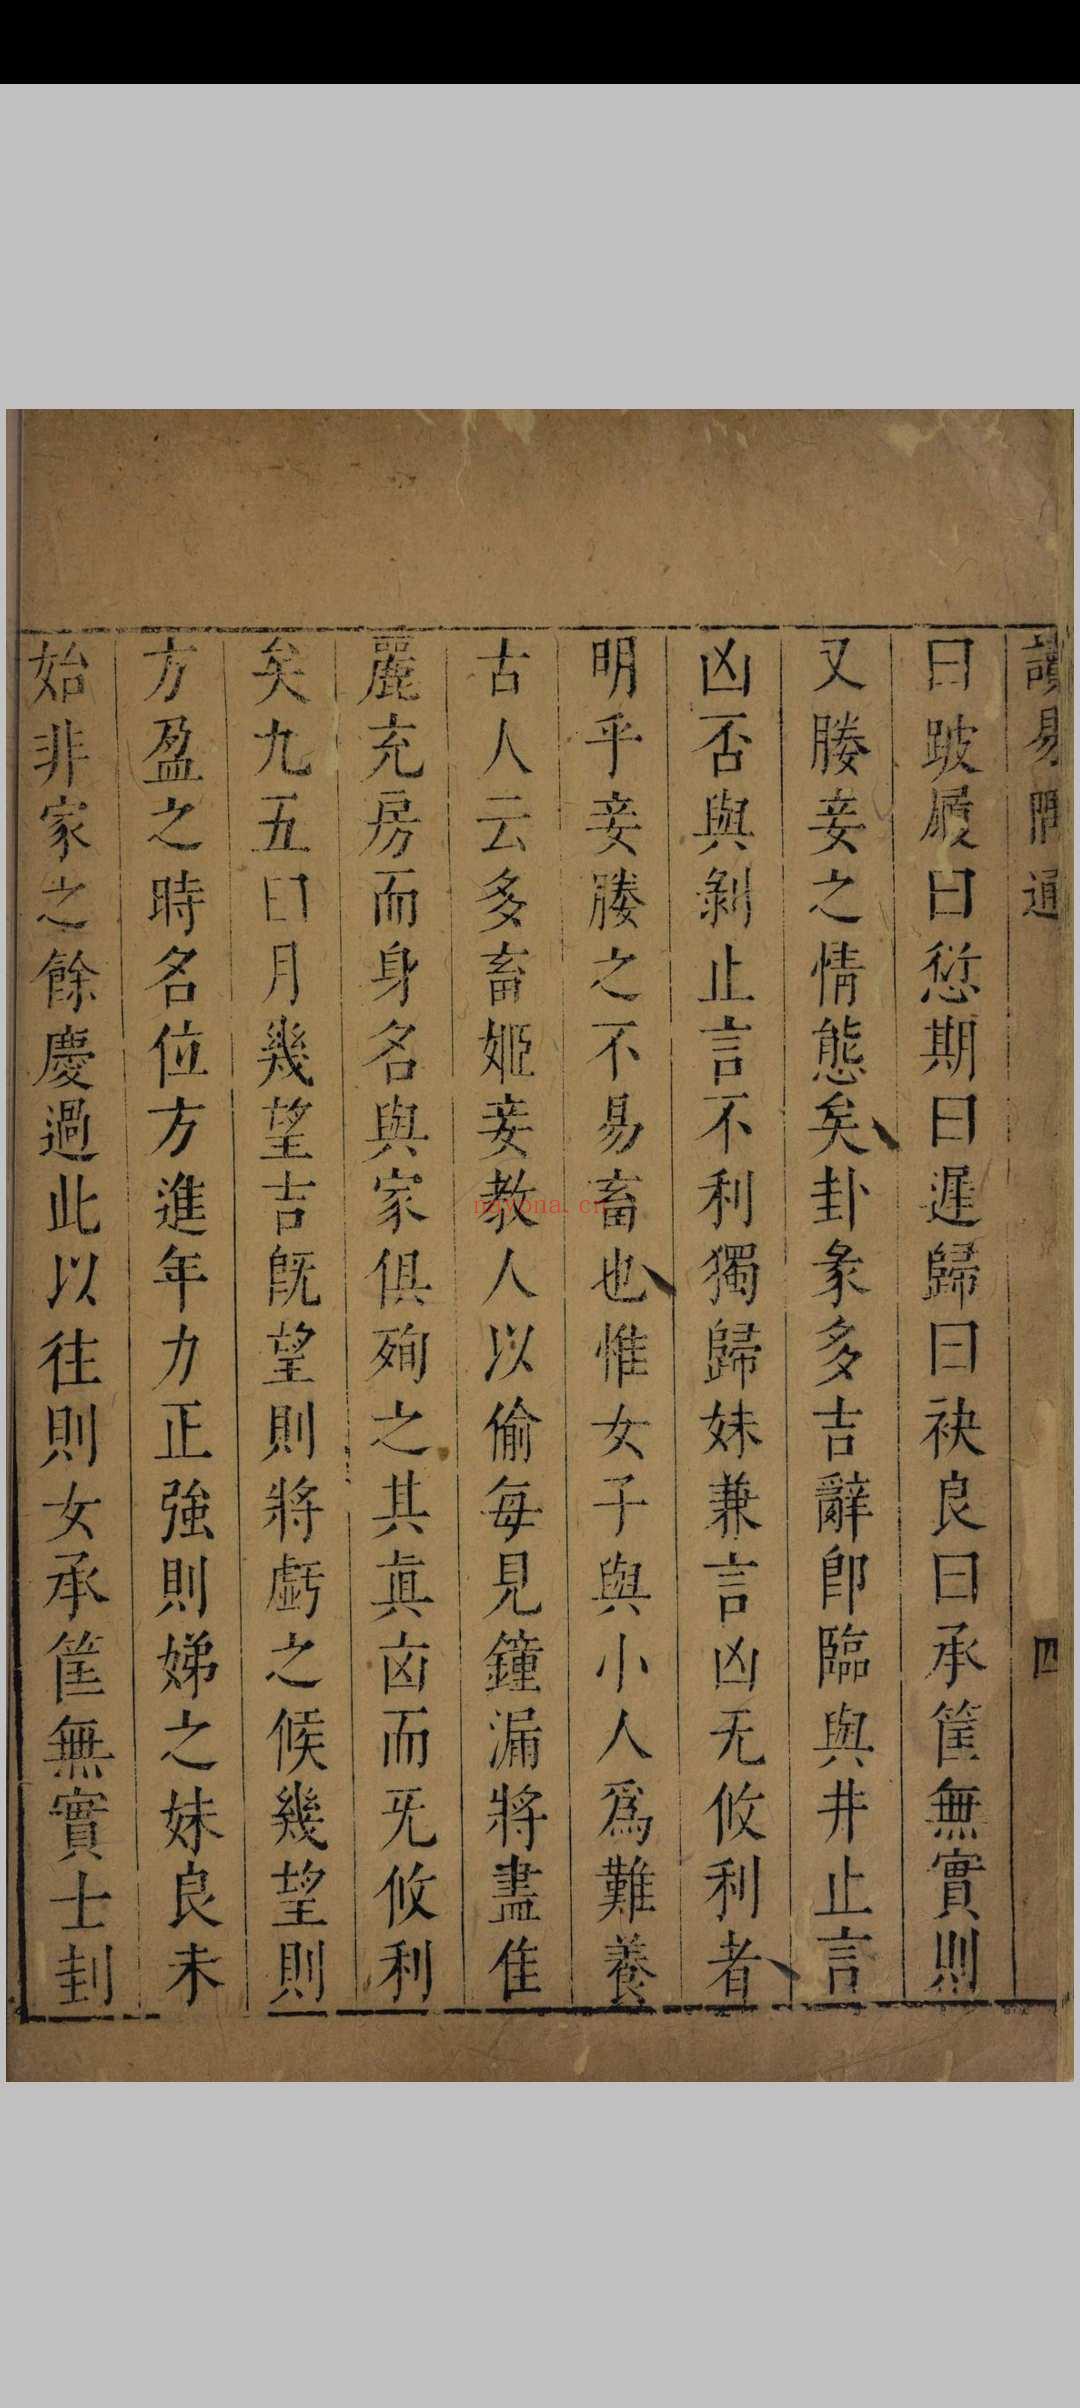 讀易隅通
四
曰跛履曰愆期曰遲歸曰袂良曰承筐無實則
又媵妾之情態矣卦彖多吉辭卽臨與井止言
凶否與剝止言不利獨歸妹兼言凶无攸利者
明乎妾媵之不易畜也惟女子與小人爲難養
古人云多畜姬妾教人以偷每見鐘漏將盡隹
麗充房而身名與家俱殉之其真凶而无攸利
矣九五曰月幾望吉旣望則將虧之候幾望則
方盈之時名位方進年力正強則娣之妹良未
始非家之餘慶過此以往則女承筐無實士刲
navona.cn